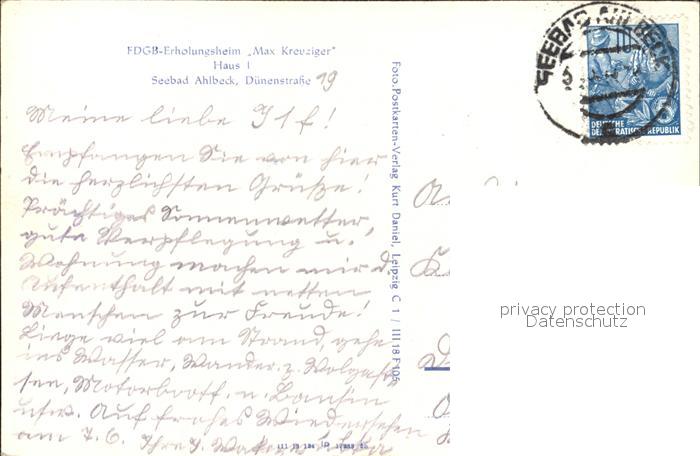 FDGB-Erholungsheim „Max Kreuziger"
Haus I
Seebad Ahlbeck, Dünenstraße 19
Meine liebe Ilse!
Empfangen Sie von hier
die herzlichsten Grüße!
Prächtiges Sonnenwetter,
gute Verpflegung u.
Wohnung machen mir d.
Aufenthalt mit netten
Menschen zur Freude!
Liege viel am Strand, gehe
ins Wasser, Wander. z. Wolgast
see, Motorbootf. n. Bansin
usw. Auf frohes Wiedersehen
am 7. 6. Ihre
Foto: Postkarten-Verlag Kurt Daniel, Leipzig C 1 / III 18 F 105
SEEBAD AHLBECK
10
DEUTSCHE
DEMOKRATISCHE REPUBLIK
privacy protection
Datenschutz